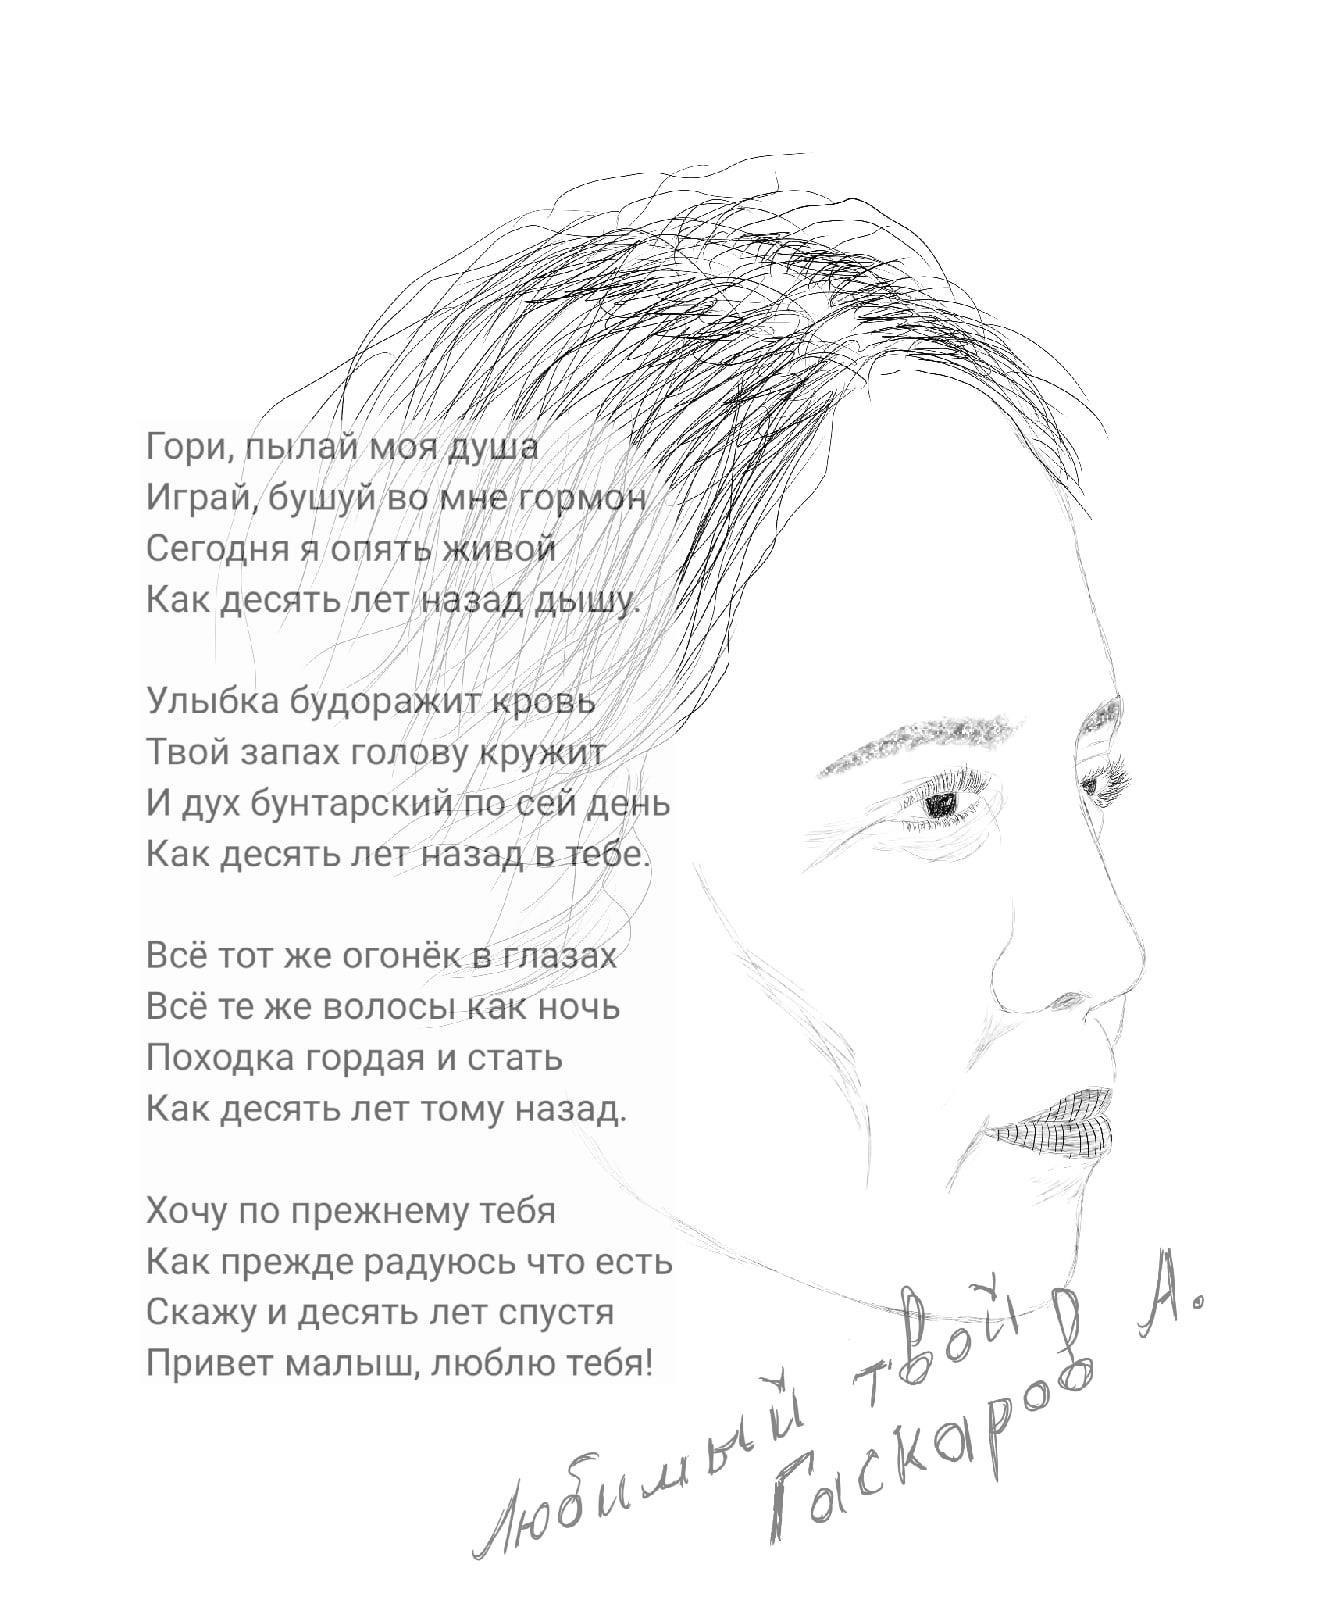 Гори, пылай моя душа
Играй, бушуй во мне гормон
Сегодня я опять живой
Как десять лет назад дышу.

Улыбка будоражит кровь
Твой запах голову кружит
И дух бунтарский по сей день
Как десять лет назад в тебе.

Всё тот же огонёк в глазах
Всё те же волосы как ночь
Походка гордая и стать
Как десять лет тому назад.

Хочу по прежнему тебя
Как прежде радуюсь что есть
Скажу и десять лет спустя
Привет малыш, люблю тебя!

Любимый твой
Гаскаров А.